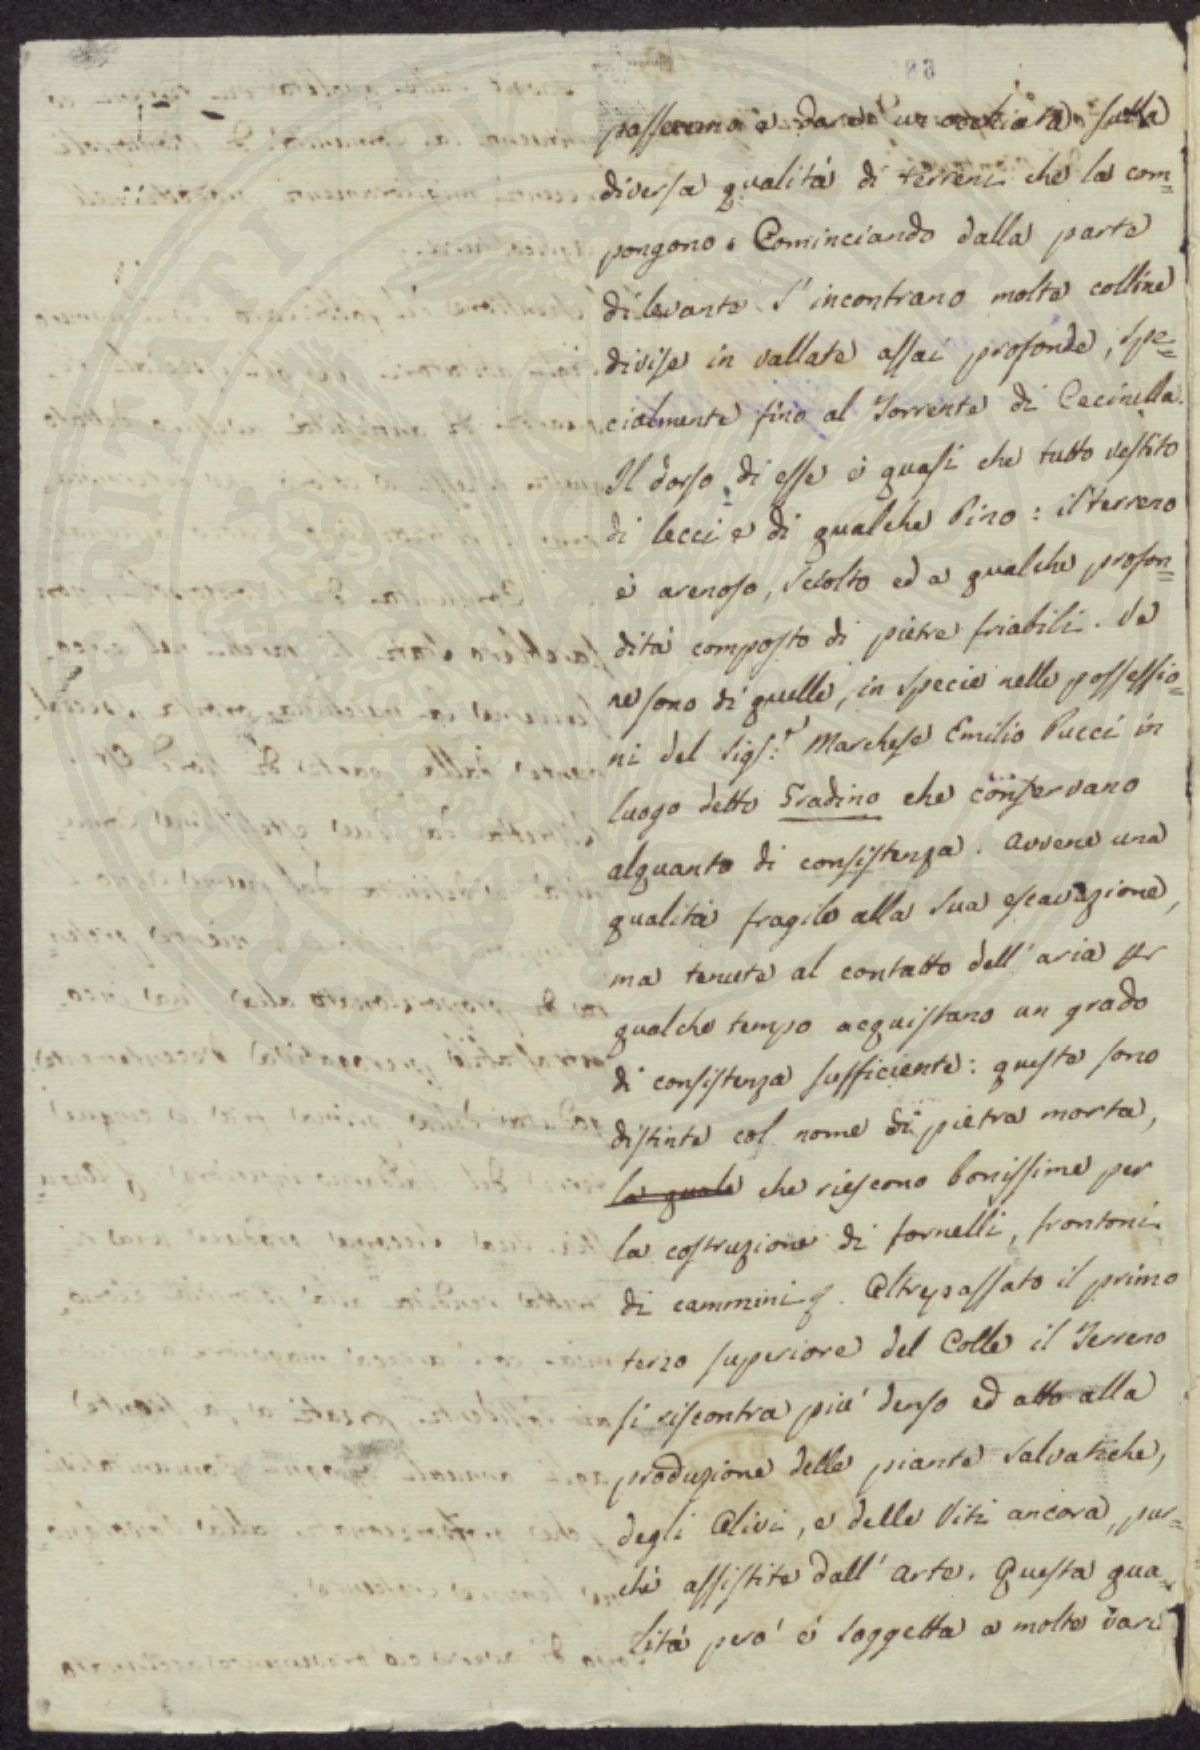 passeremo a dare un occhiata sulla
diversa qualità di terreni che la com=
pongono. Cominciando dalla parte
di levante s'incontrano molte colline
divise in vallate assai profonde, spe=
cialmente fino al Torrente di Cecinella.
Il dorso di esse è quasi che tutto vestito
di lecci e di qualche Pino: il terreno
è arenoso, sciolto ed a qualche profon=
dità composto di pietre friabili. Ve
ne sono di quelle, in specie nelle possessio=
ni del Sigr. Marchese Emilio Pucci in
luogo detto Gradino che conservano
alquanto di consistenza. Avvene una
qualità fragile alla sua escavazione,
ma tenute al contatto dell'aria per
qualche tempo acquistano un grado
di consistenza sufficiente: queste sono
distinte col nome di pietra morta,
la quale che riescono bonissime per
la costruzione di fornelli, frontoni
di cammini. Oltrepassato il primo
terzo superiore del Colle il Terreno
si riscontra più denso ed atto alla
produzione delle piante salvatiche,
degli Olivi, e delle Viti ancora, pur=
chè assistite dall'arte. Questa qua=
lità però è soggetta a molte vari